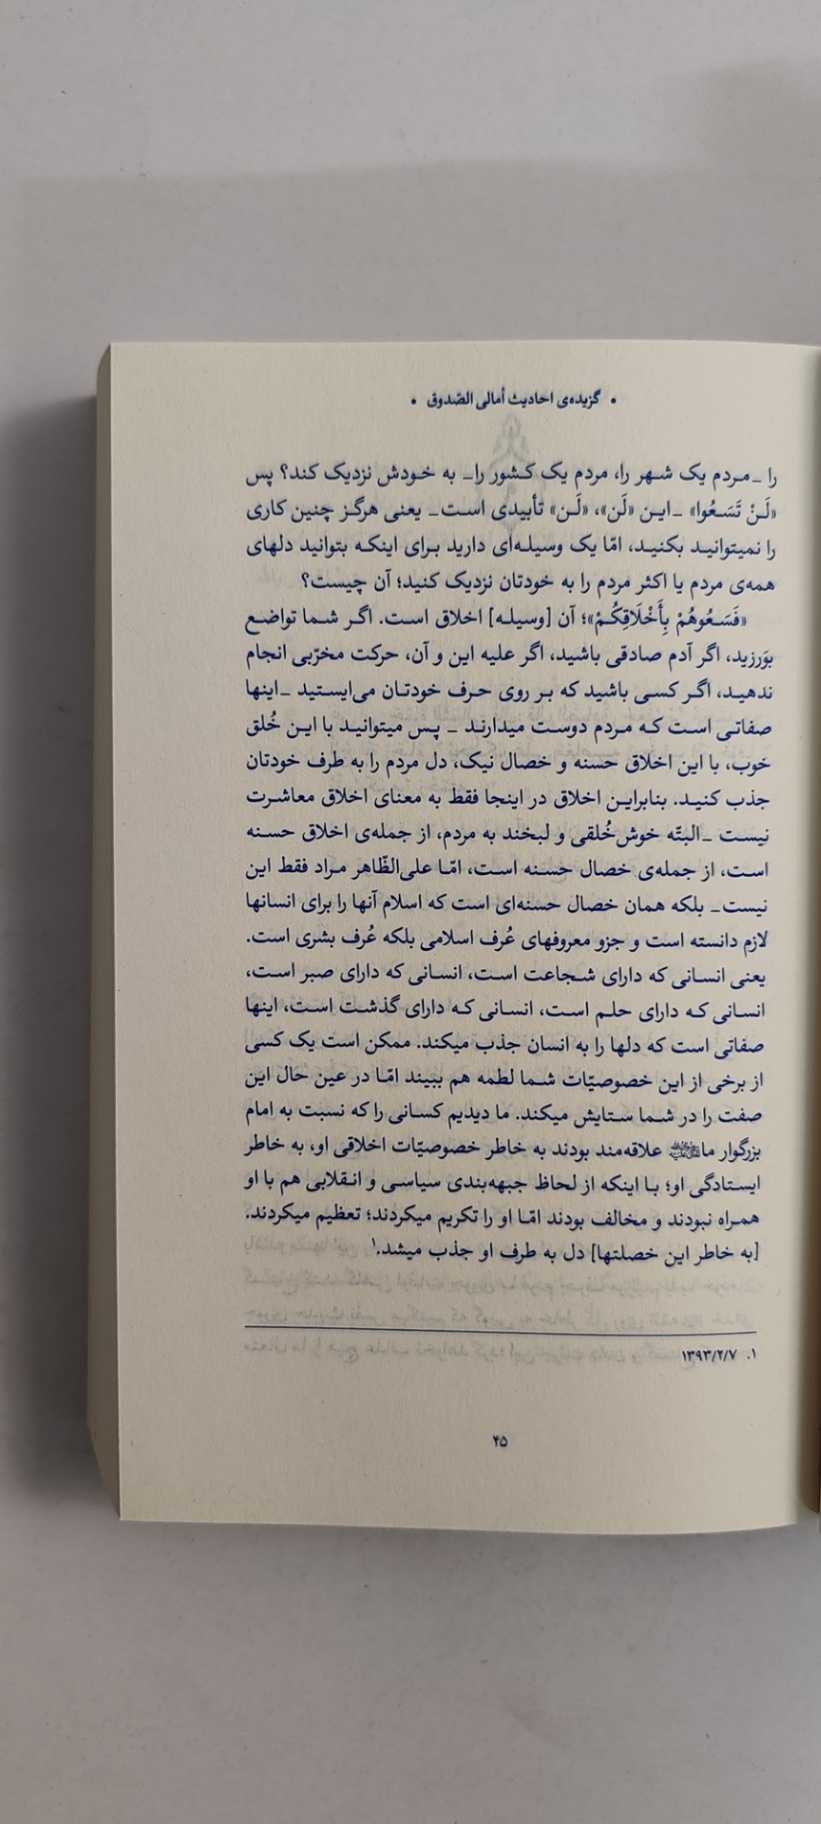 • گزیده‌ی احادیث أمالی الصّدوق •
را ـ مردم یک شهر را، مردم یک کشور را ـ به خودش نزدیک کند؟ پس
«لَنْ تَسَعُوا» ـ این «لَن»، «لَن» تأبیدی است ـ یعنی هرگز چنین کاری
را نمیتوانید بکنید، امّا یک وسیله‌ای دارید برای اینکه بتوانید دلهای
همه‌ی مردم یا اکثر مردم را به خودتان نزدیک کنید؛ آن چیست؟
«فَسَعُوهُمْ بِأَخْلَاقِكُمْ»؛ آن [وسیله] اخلاق است. اگر شما تواضع
بوَرزید، اگر آدم صادقی باشید، اگر علیه این و آن، حرکت مخرّبی انجام
ندهید، اگر کسی باشید که بر روی حرف خودتان می‌ایستید ـ اینها
صفاتی است که مردم دوست میدارند ـ پس میتوانید با این خُلق
خوب، با این اخلاق حسنه و خصال نیک، دل مردم را به طرف خودتان
جذب کنید. بنابراین اخلاق در اینجا فقط به معنای اخلاق معاشرت
نیست ـ البتّه خوش‌خُلقی و لبخند به مردم، از جمله‌ی اخلاق حسنه
است، از جمله‌ی خصال حسنه است، امّا علی‌الظّاهر مراد فقط این
نیست ـ بلکه همان خصال حسنه‌ای است که اسلام آنها را برای انسانها
لازم دانسته است و جزو معروفهای عُرف اسلامی بلکه عُرف بشری است.
یعنی انسانی که دارای شجاعت است، انسانی که دارای صبر است،
انسانی که دارای حلم است، انسانی که دارای گذشت است، اینها
صفاتی است که دلها را به انسان جذب میکند. ممکن است یک کسی
از برخی از این خصوصیّات شما لطمه هم ببیند امّا در عین حال این
صفت را در شما ستایش میکند. ما دیدیم کسانی را که نسبت به امام
بزرگوار ما علاقه‌مند بودند به خاطر خصوصیّات اخلاقی او، به خاطر
ایستادگی او؛ با اینکه از لحاظ جبهه‌بندی سیاسی و انقلابی هم با او
همراه نبودند و مخالف بودند امّا او را تکریم میکردند؛ تعظیم میکردند.
[به خاطر این خصلتها] دل به طرف او جذب میشد.۱
۱. ۱۳۹۳/۲/۷
۴۵